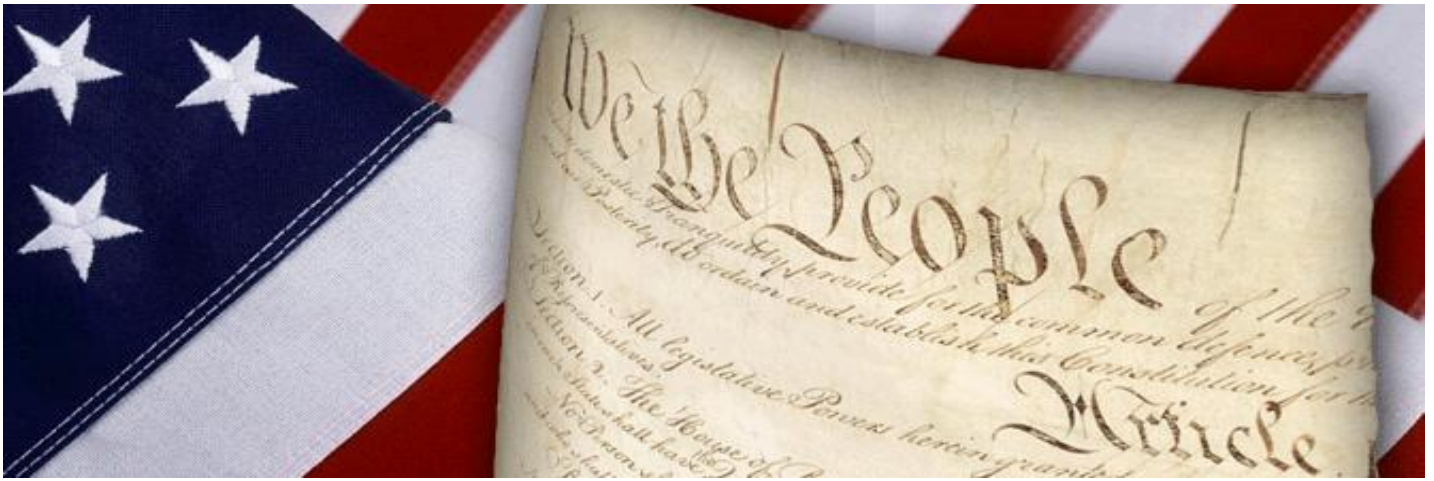 We the People of the
domestic Tranquility, provide for the common defence, pro
and our Posterity, do ordain and establish this Constitution for
Article
Section 1. All legislative Powers herein granted
of Representatives
Section 2. The House of
States shall have the
No Person
shall